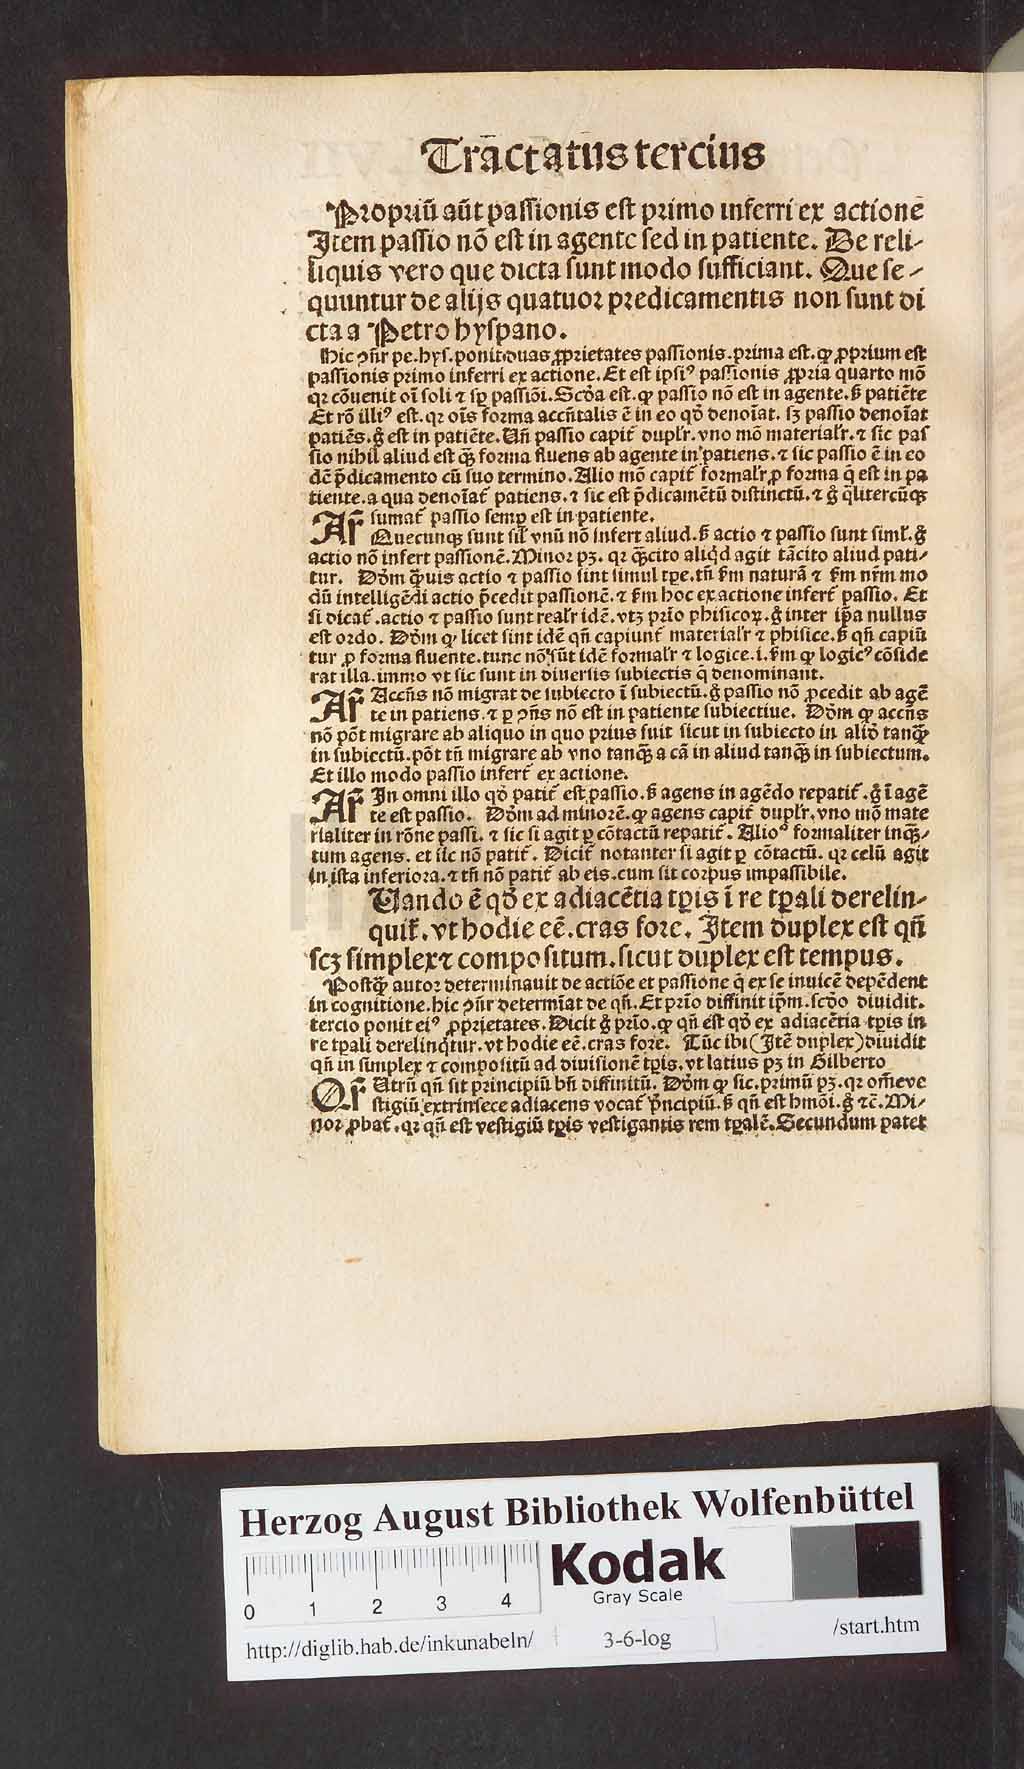 Tractatus tercius
Propriū aūt passionis est primo inferri ex actione
Item passio nō est in agente sed in patiente. De reli-
liquis vero que dicta sunt modo sufficiant. Que se-
quuntur de alijs quatuor predicamentis non sunt di
cta a Petro hyspano.
Hic ꝯñr pe.hys.ponit duas ꝓprietates passionis.prima est.ꝙ ꝓprium est
passionis primo inferri ex actione.Et est ipsiꝰ passionis ꝓpria quarto mō
qr cōuenit oī soli ⁊ sꝑ passiōi.Scđa est.ꝙ passio nō est in agente.ꝸ patiēte
Et rō illiꝰ est.qr oīs forma accñtalis ē in eo qđ denoīat.sꝫ passio denoīat
patiēs.g̊ est in patiēte.Uñ passio capit᷑ duplr̄.vno mō materialr̄.⁊ sic pas
sio nihil aliud est qꝫ̄ forma fluens ab agente in patiens.⁊ sic passio ē in eo
dē p̄dicamento cū suo termino.Alio mō capit᷑ formalr̄ ꝓ forma q̄ est in pa
tiente.a qua denoīat᷑ patiens.⁊ sic est p̄dicamētū distinctū.⁊ g̊ q̄litercūqꝫ
Ar᷑ sumat᷑ passio semꝑ est in patiente.
Quecunqꝫ sunt sil̄ vnū nō infert aliud.ꝸ actio ⁊ passio sunt siml̄.g̊
actio nō infert passionē.Minor pꝫ.qr qꝫ̄cito aliqđ agit tācito aliud pati-
tur. Dōm qꝫ̄uis actio ⁊ passio sint simul tꝑe.tñ ẜm naturā ⁊ ẜm nr̄m mo
dū intelligēdi actio p̄cedit passionē.⁊ ẜm hoc ex actione infert᷑ passio. Et
si dicat᷑.actio ⁊ passio sunt realr̄ idē.vtꝫ prīo phisicoꝝ.g̊ inter ip̄a nullus
est ordo. Dōm ꝙ licet sint idē qñ capiunt᷑ materialr̄ ⁊ phisice.ꝸ qñ capiū
tur ꝓ forma fluente.tunc nō sūt idē formalr̄ ⁊ logice.i.ẜm ꝙ logicꝰ cōside
rat illa.immo vt sic sunt in diuersis subiectis q̄ denominant.
Ar᷑ Accñs nō migrat de subiecto ī subiectū.g̊ passio nō ꝓcedit ab agē
te in patiens.⁊ ꝑ ꝯñs nō est in patiente subiectiue. Dōm ꝙ accñs
nō pōt migrare ab aliquo in quo prius fuit sicut in subiecto in aliđ tanqꝫ̄
in subiectū.pōt tñ migrare ab vno tanqꝫ̄ a cā in aliud tanqꝫ̄ in subiectum.
Et illo modo passio infert᷑ ex actione.
Ar᷑ In omni illo qđ patit᷑ est passio.ꝸ agens in agēdo repatit᷑.g̊ ī agē
te est passio. Dōm ad minorē.ꝙ agens capit᷑ duplr̄.vno mō mate
rialiter in rōne passi.⁊ sic si agit ꝑ cōtactū repatit᷑. Alioº formaliter inqꝫ̄-
tum agens. et sic nō patit᷑. Dicit᷑ notanter si agit ꝑ cōtactū. qr celū agit
in ista inferiora.⁊ tñ nō patit᷑ ab eis.cum sit corpus impassibile.
Uando ē qđ ex adiacētia tꝑis ī re tꝑali derelin-
quit᷑.vt hodie eē.cras fore. Item duplex est qñ
scꝫ simplex ⁊ compositum.sicut duplex est tempus.
Postqꝫ̄ autor determinauit de actiōe et passione q̄ ex se inuicē depēdent
in cognitione.hic ꝯñr determīat de qñ.Et prīo diffinit ip̄m.scđo diuidit.
tercio ponit eiꝰ ꝓprietates.Dicit g̊ prīo.ꝙ qñ est qđ ex adiacētia tꝑis in
re tꝑali derelinq̄tur.vt hodie eē.cras fore. Tūc ibi (Itē duplex) diuidit
qñ in simplex ⁊ compositū ad diuisionē tꝑis.vt latius pꝫ in Gilberto
Qr᷑ Utrū qñ sit principiū bñ diffinitū. Dōm ꝙ sic.primū pꝫ.qr om̄e ve
stigiū extrinsece adiacens vocat᷑ p̄ncipiū.ꝸ qñ est hmōi.g̊ ⁊c̄.Mi-
nor ꝓbat᷑.qr qñ est vestigiū tꝑis vestigantis rem tꝑalē.Secundum patet
Herzog August Bibliothek Wolfenbüttel
0 1 2 3 4
Kodak
Gray Scale
http://diglib.hab.de/inkunabeln/ 3-6-log /start.htm